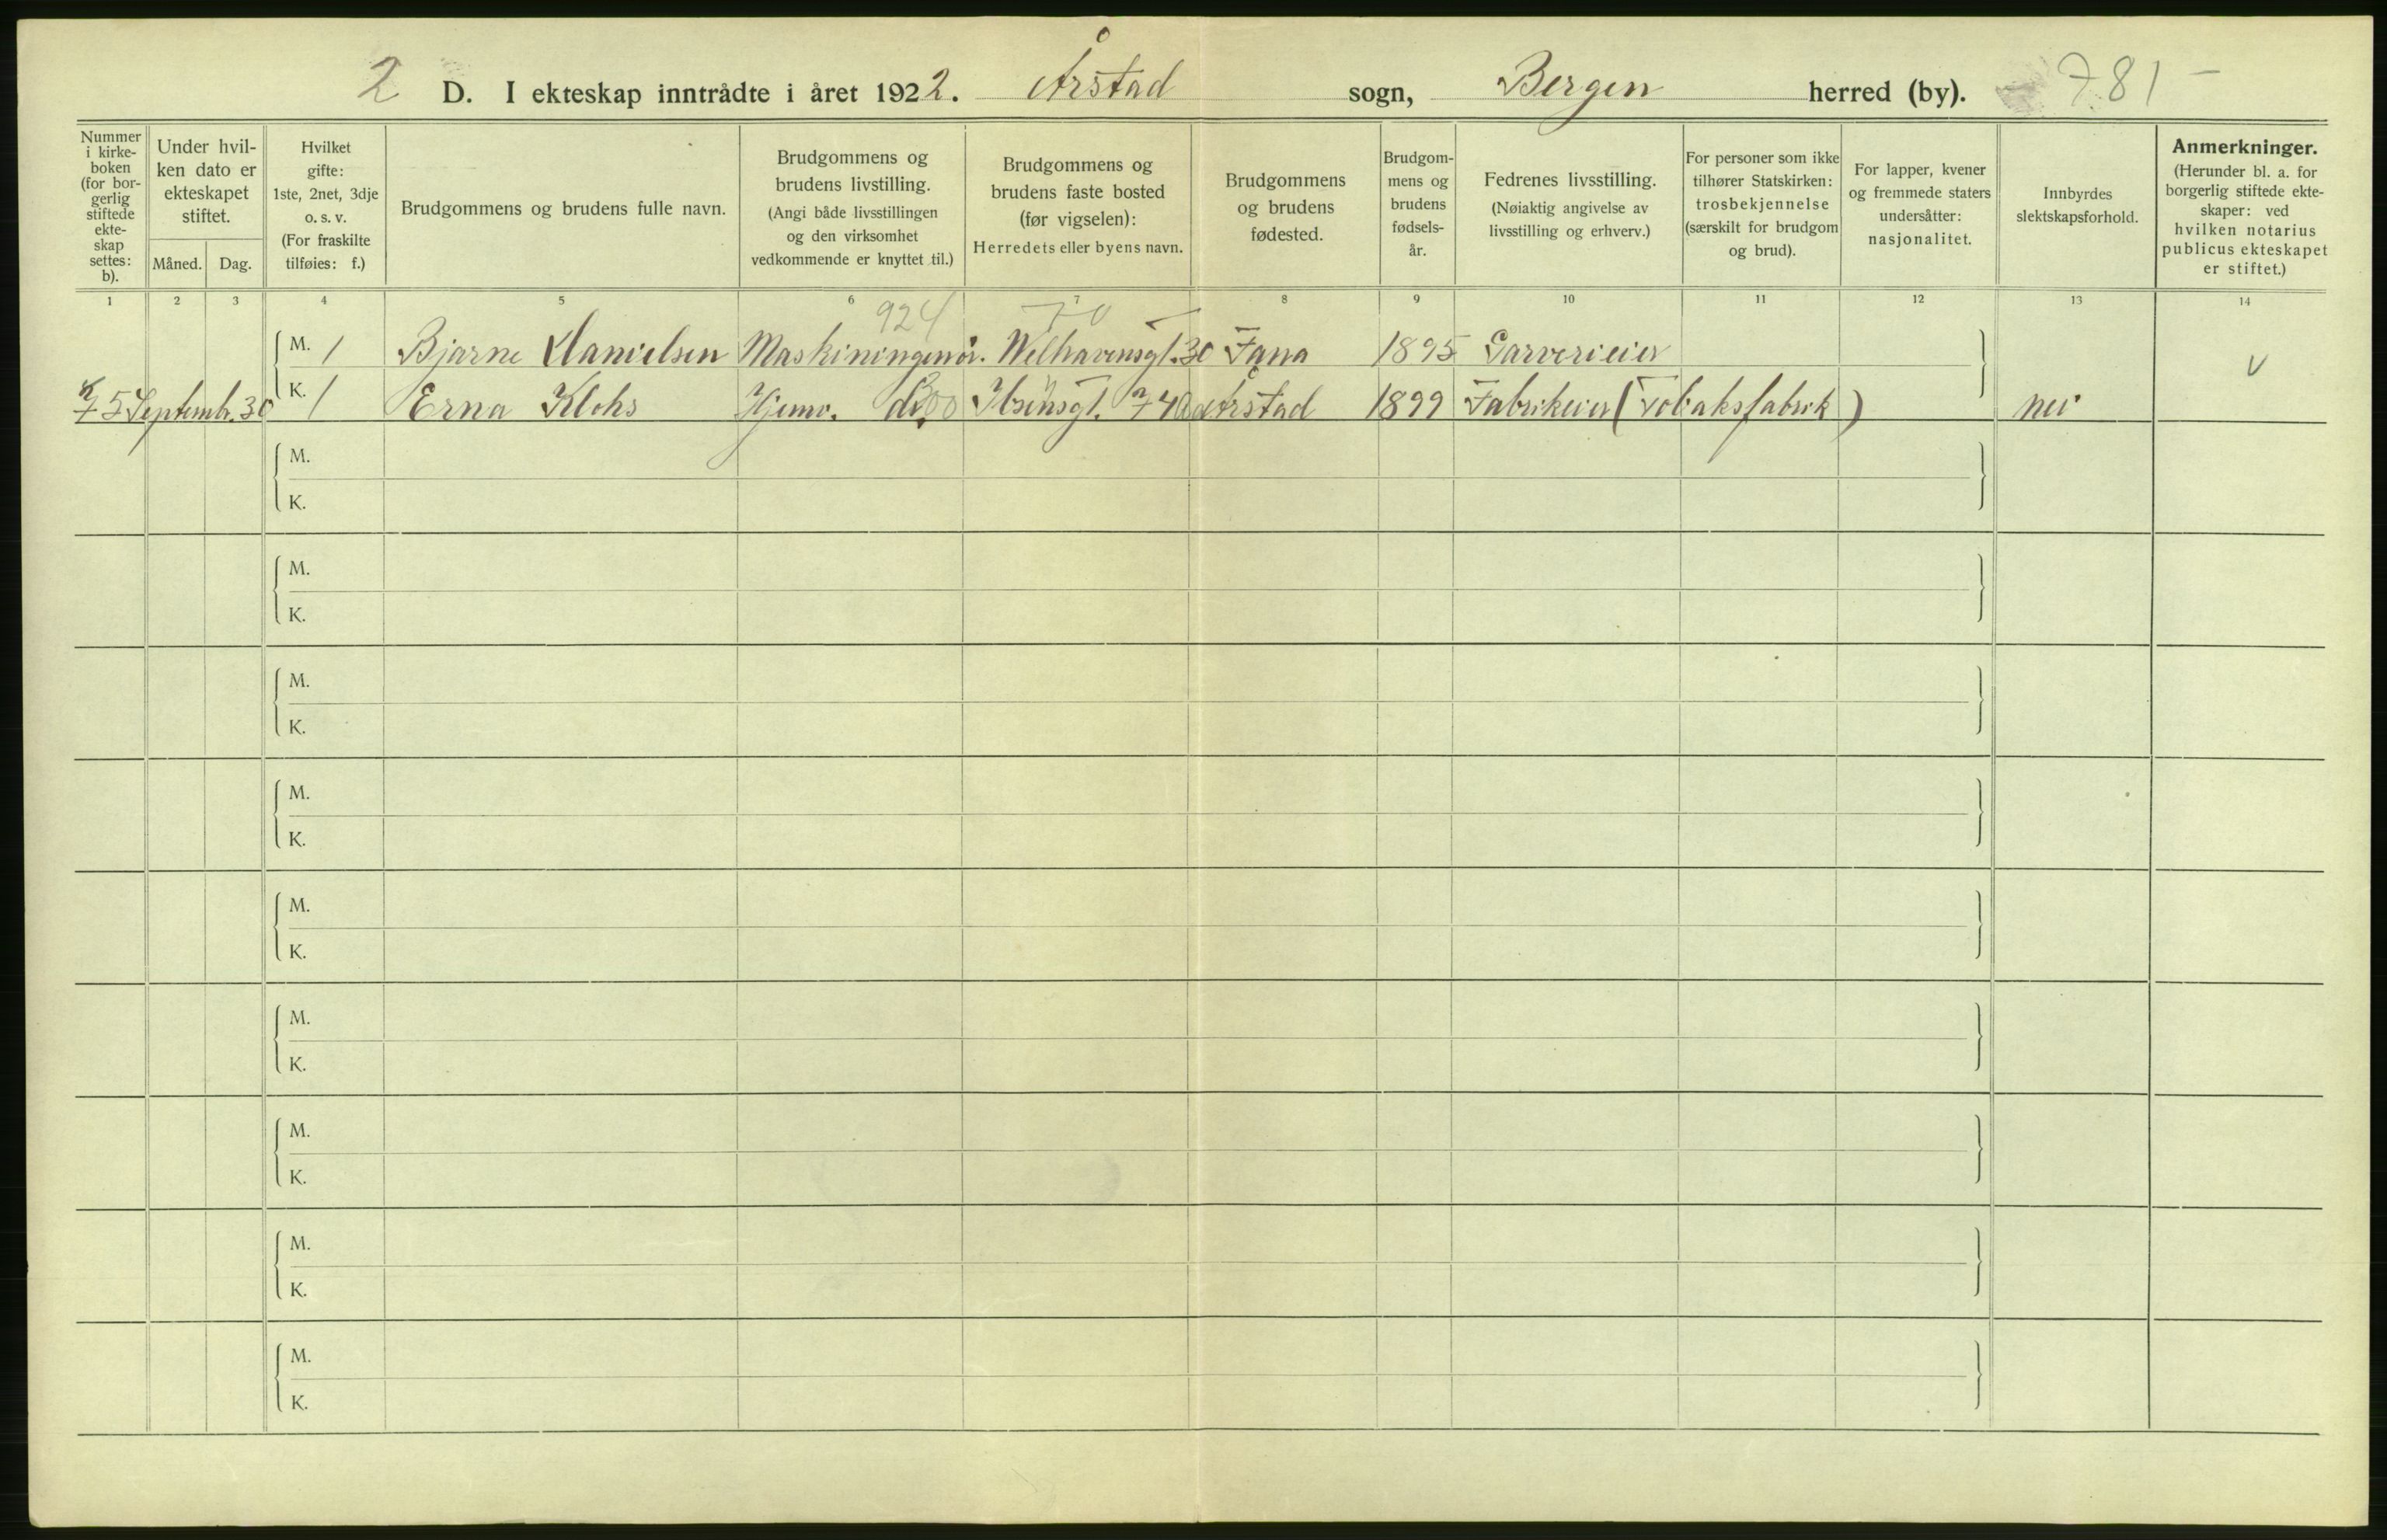 2 D. I ekteskap inntrådte i året 1922. Årstad sogn, Bergen herred (by). 781 –
Nummer i kirke- boken (for bor- gerlig stiftede ekte- skap settes: b).
Under hvil- ken dato er ekteskapet stiftet.
Måned. Dag.
Hvilket gifte: 1ste, 2net, 3dje o. s. v. (For fraskilte tilføies: f.)
Brudgommens og brudens fulle navn.
Brudgommens og brudens livstilling. (Angi både livsstillingen og den virksomhet vedkommende er knyttet til.)
Brudgommens og brudens faste bosted (før vigselen): Herredets eller byens navn.
Brudgommens og brudens fødested.
Brudgom- mens og brudens fødsels- år.
Fedrenes livsstilling. (Nøiaktig angivelse av livsstilling og erhverv.)
For personer som ikke tilhører Statskirken: trosbekjennelse (særskilt for brudgom og brud).
For lapper, kvener og fremmede staters undersåtter: nasjonalitet.
Innbyrdes slektskapsforhold.
Anmerkninger. (Herunder bl. a. for borgerlig stiftede ekte- skaper: ved hvilken notarius publicus ekteskapet er stiftet.)
1 2 3 4 5 6 7 8 9 10 11 12 13 14
924
M. 1 Bjarne Danielsen Maskiningeniør. Welhavensgt. 30 Fana 1895 Garverieier
75 Septembr. 30 K. 1 Erna Klohs Hjemv. d. 300 Ibsensgt. Årstad 1899 Fabrikeier (Tobaksfabrik) nei
M.
K.
M.
K.
M.
K.
M.
K.
M.
K.
M.
K.
M.
K.
M.
K.
M.
K.